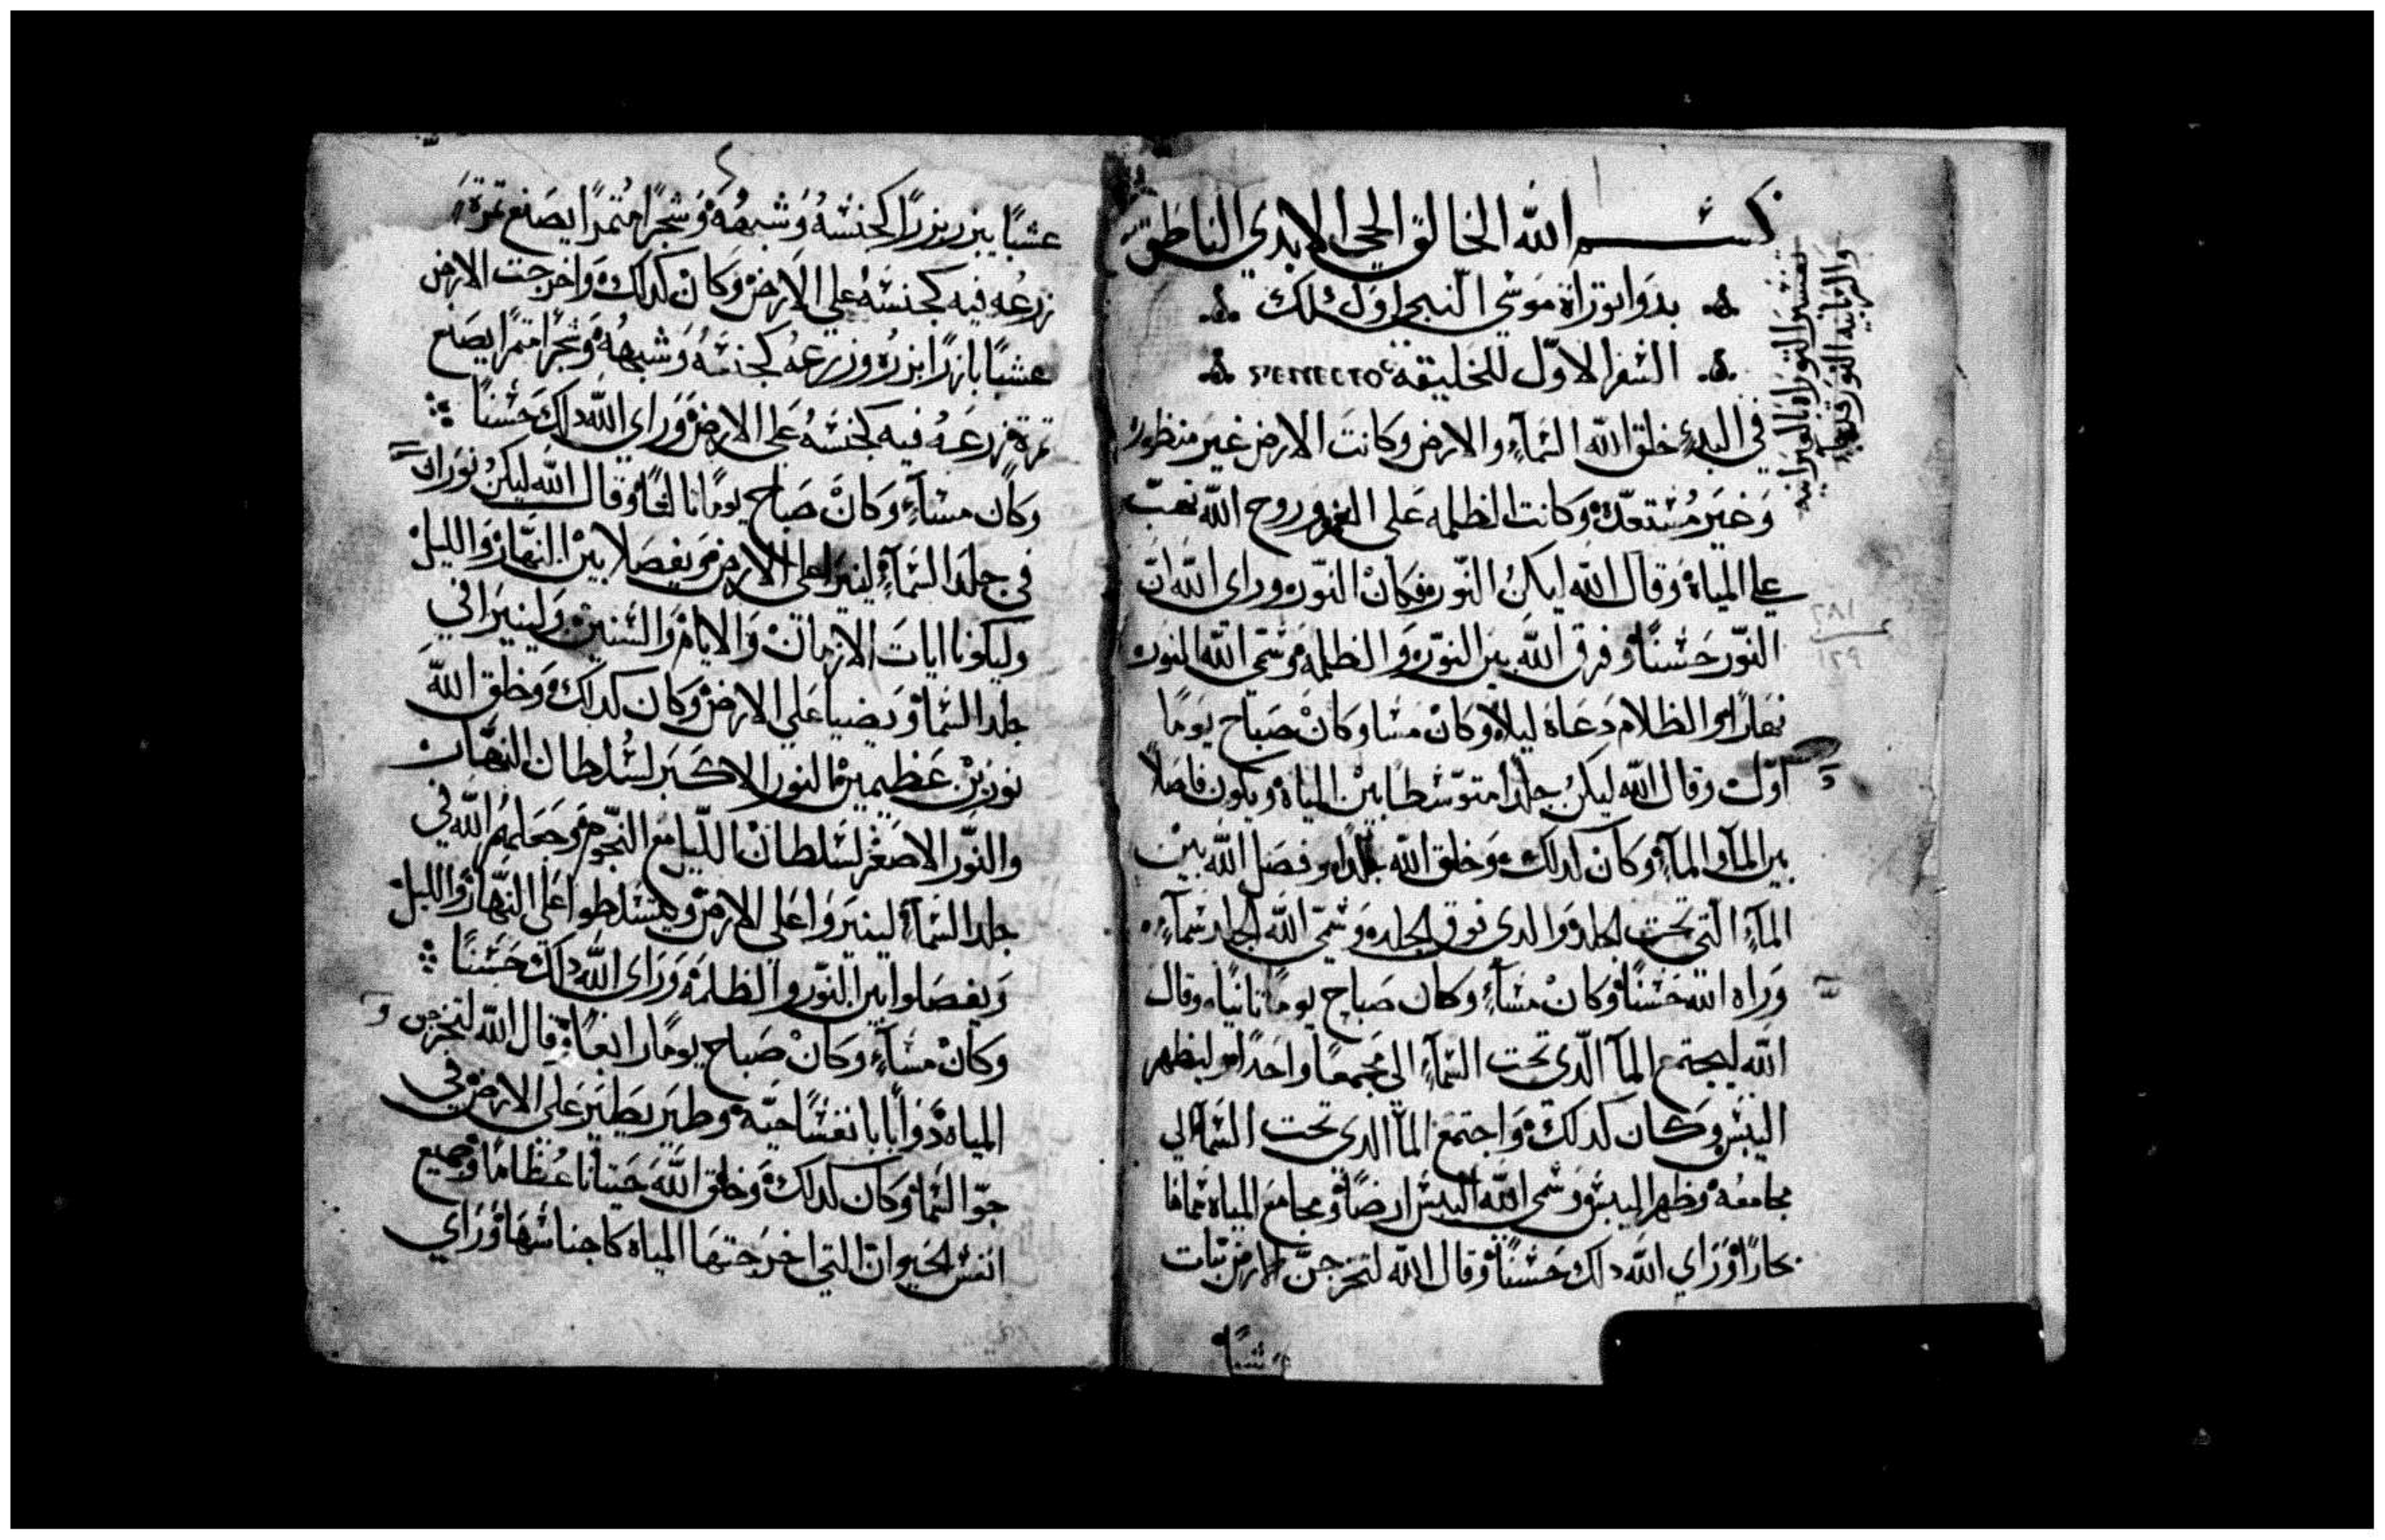 بسم الله الخالق الحي الابدي الناطق
بدوا توراة موسي النبي اول ذلك
السفر الاول للخليقة
في البدء خلق الله السمآء والارض وكانت الارض غير منظوره
وغير مستعدة وكانت الظلمه علي الغمر وروح الله تهب
علي المياه وقال الله ليكن النور فكان النور وراى الله ان
النور حسنًا وفرق الله بين النور والظلمه وسمى الله النور
نهارًا والظلام دعاه ليلا وكان مسا وكان صباح يومًا
اول وقال الله ليكن جلدًا متوسطًا بين المياه ويكون فاصلاً
بين المآ والمآء وكان كدلك وخلق الله جلدا وفصل الله بين
المآء التي تحت الجلد والدي فوق الجلد وسمى الله الجلد سمآء
وراه الله حسنًا وكان مسآء وكان صباح يومًا ثانيًا وقال
الله ليجتمع المآ الدى تحت السمآء الى مجمعًا واحدًا وليظهر
اليبس وكان كدلك واجتمع المآ الدى تحت السمآ الي
مجامعه وظهر اليبس وسمى الله اليبس ارضًا ومجامع المياه سماها
بحارًا وراي الله دلك حسنًا وقال الله لتخرجن الارض نبات
عشبًا
تفسير التوراه العبرانيه
عشبًا يبزر بزرًا كجنسه وشبهه وشجرًا مثمرًا يصنع ثمرة
زرعه فيه كجنسه علي الارض وكان كدلك واخرجت الارض
عشبًا بازرًا بزره وزرعه كجنسه وشبهه وشجرًا مثمرًا يصنع
ثمرة زرعه فيه كجنسه على الارض وراي الله دلك حسنًا
وكان مسآء وكان صباح يومًا ثالثًا وقال الله ليكن نوران
في جلد السمآء لينيرا على الارض ويفصلا بين النهار والليل
وليكونا ايات الازمان والايام والسنين ولينيرا في
جلد السما ويضيا علي الارض وكان كدلك وخلق الله
نورين عظيمين النور الاكبر لسلطان النهار
والنور الاصغر لسلطان الليل مع النجوم وجعلهم الله في
جلد السمآء لينيروا على الارض ويتسلطوا على النهار والليل
ويفصلوا بين النور والظلمه وراى الله دلك حسنًا
وكان مسآء وكان صباح يومًا رابعًا وقال الله لتخرجن
المياه دوابا نفسًا حيه وطير يطير على الارض في
جو السما وكان كدلك وخلق الله حيتانًا عظامًا وجميع
انفس الحيوان التي اخرجتها المياه كاجناسها وراي